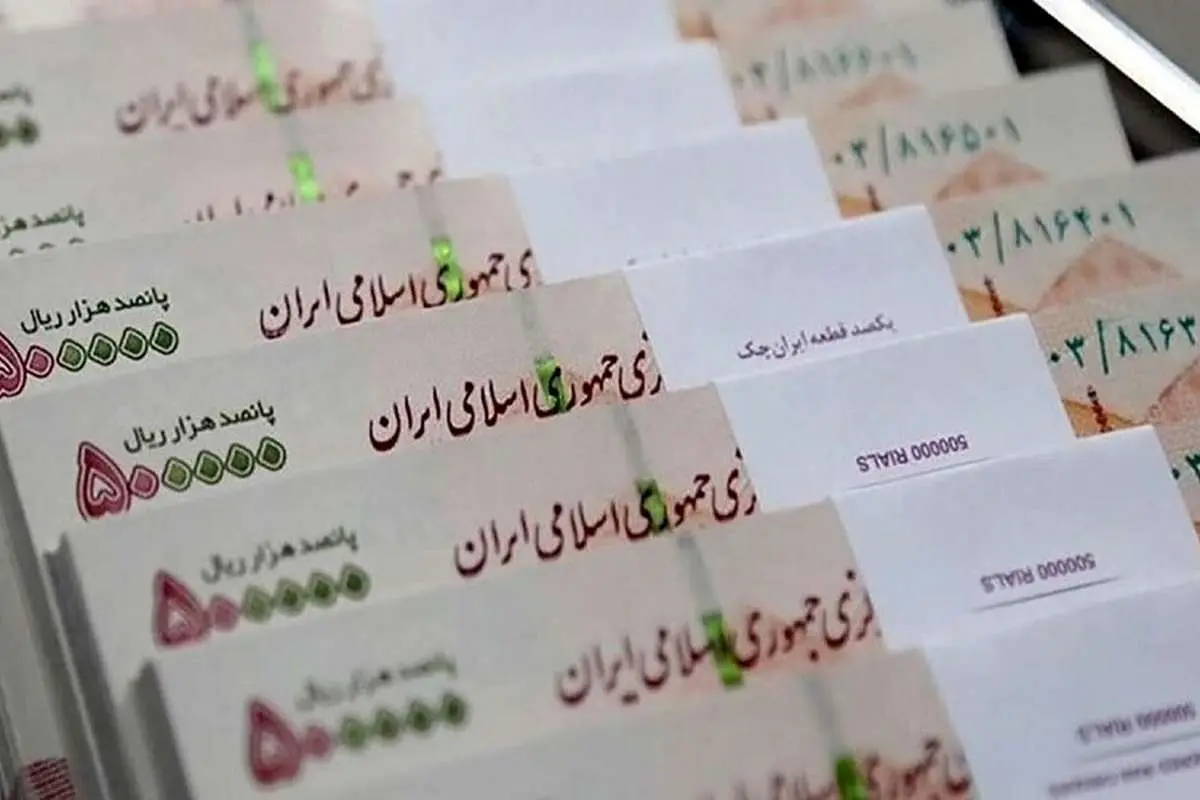 جمهوری اسلامی ایران
۸۱۶۶۰۱
پانصد هزار
۰۳/۸۱۶۵۰۱
پانصد هزار ریال
۵۰۰۰۰۰
جمهوری اسلامی ایران
۰۳/۸۱۶۴۰۱
پانصد هزار ریال
۵۰۰۰۰۰
زی جمهوری اسلامی ایران
یکصد قطعه ایران چک
۰۳/۸۱۶۳
پانصد هزار ریال
۵۰۰۰۰۰
زی جمهوری اسلامی ایران
500000 RIALS
پانصد هزار ریال
۵۰۰۰۰۰
کزی جمهوری اسلامی ایران
500000 RIALS
جمهوری
500000 RIALS